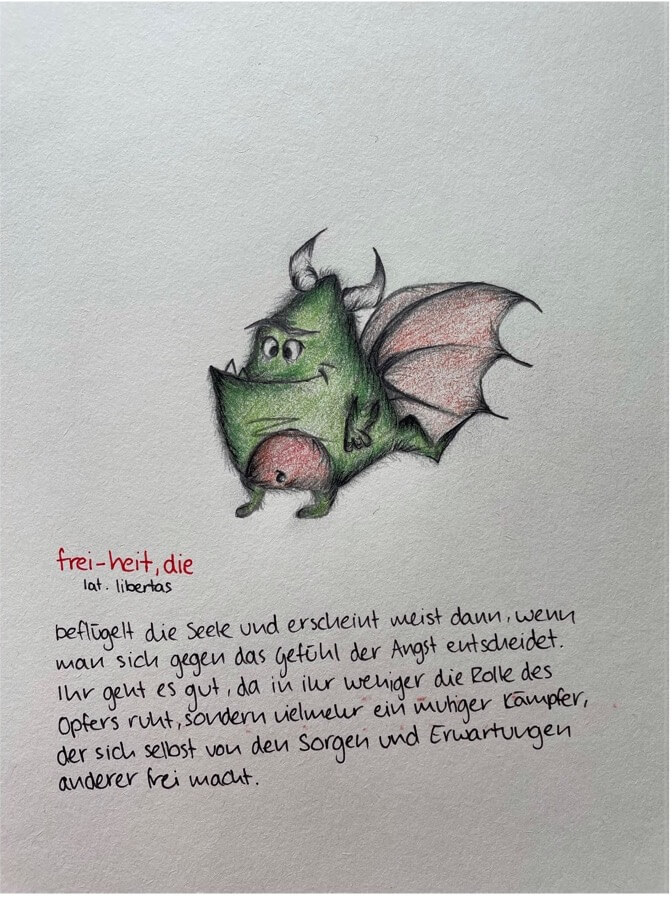 frei-heit, die
lat. libertas
beflügelt die Seele und erscheint meist dann, wenn
man sich gegen das Gefühl der Angst entscheidet.
Ihr geht es gut, da in ihr weniger die Rolle des
Opfers ruht, sondern vielmehr ein mutiger Kämpfer,
der sich selbst von den Sorgen und Erwartungen
anderer frei macht.